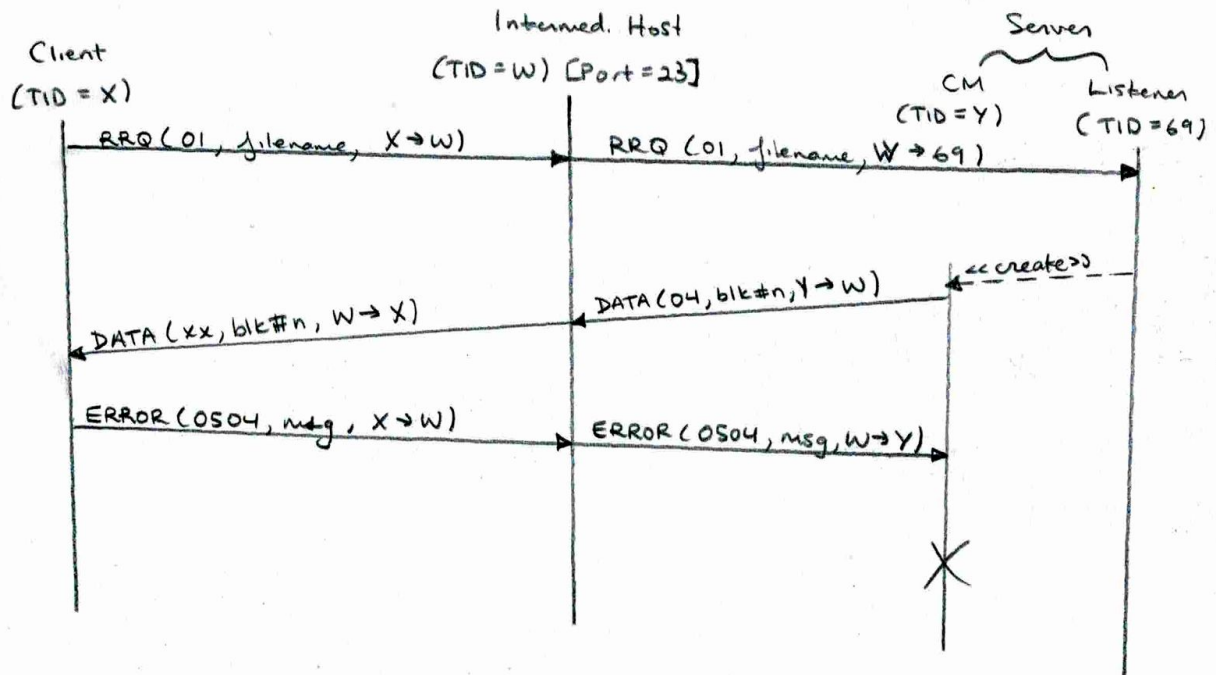 Client
(TID = X)
Intermed. Host
(TID = W) [Port = 23]
Server
CM
(TID = Y)
Listener
(TID = 69)
RRQ (01, filename, X → W)
RRQ (01, filename, W → 69)
<<create>>
DATA (04, blk#n, Y → W)
DATA (xx, blk#n, W → X)
ERROR (0504, msg, X → W)
ERROR (0504, msg, W → Y)